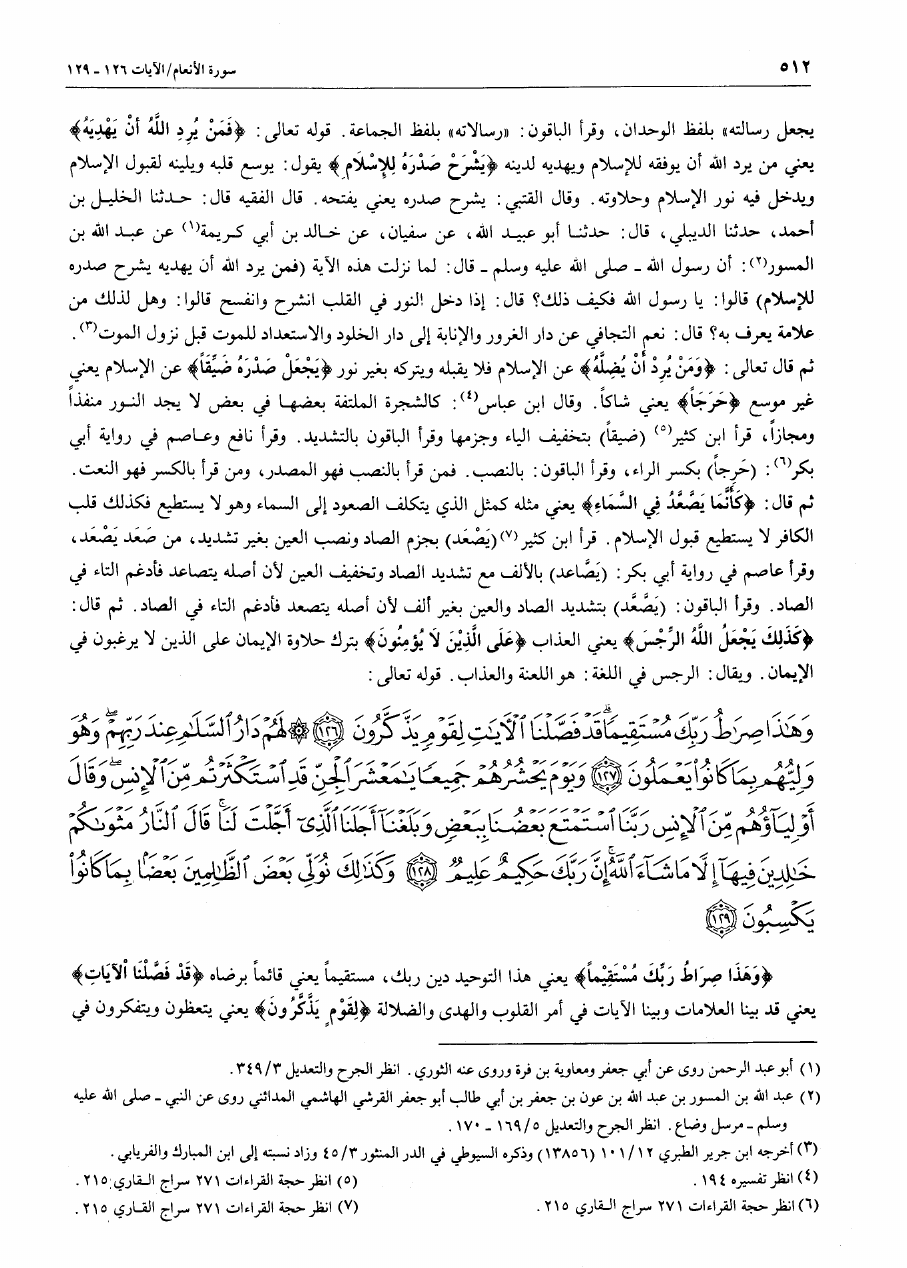 ٥١٢ سورة الأنعام/ الآيات ١٢٦ - ١٢٩
يجعل رسالته» بلفظ الوحدان، وقرأ الباقون: «رسالاته» بلفظ الجماعة. قوله تعالى: ﴿فَمَنْ يُرِدِ اللَّهُ أَنْ يَهْدِيَهُ﴾
يعني من يرد الله أن يوفقه للإسلام ويهديه لدينه ﴿يَشْرَحْ صَدْرَهُ لِلإِسْلَامِ﴾ يقول: يوسع قلبه ويلينه لقبول الإسلام
ويدخل فيه نور الإسلام وحلاوته. وقال القتبي: يشرح صدره يعني يفتحه. قال الفقيه قال: حدثنا الخليل بن
أحمد، حدثنا الديبلي، قال: حدثنا أبو عبيد الله، عن سفيان، عن خالد بن أبي كريمة(١) عن عبد الله بن
المسور(٢): أن رسول الله - صلى الله عليه وسلم - قال: لما نزلت هذه الآية (فمن يرد الله أن يهديه يشرح صدره
للإسلام) قالوا: يا رسول الله فكيف ذلك؟ قال: إذا دخل النور في القلب انشرح وانفسح قالوا: وهل لذلك من
علامة يعرف به؟ قال: نعم التجافي عن دار الغرور والإنابة إلى دار الخلود والاستعداد للموت قبل نزول الموت(٣).
ثم قال تعالى: ﴿وَمَنْ يُرِدْ أَنْ يُضِلَّهُ﴾ عن الإسلام فلا يقبله ويتركه بغير نور ﴿يَجْعَلْ صَدْرَهُ ضَيِّقاً﴾ عن الإسلام يعني
غير موسع ﴿حَرَجَاً﴾ يعني شاكاً. وقال ابن عباس(٤): كالشجرة الملتفة بعضها في بعض لا يجد النور منفذاً
ومجازاً، قرأ ابن كثير(٥) (ضيقاً) بتخفيف الياء وجزمها وقرأ الباقون بالتشديد. وقرأ نافع وعاصم في رواية أبي
بكر(٦): (حَرِجاً) بكسر الراء، وقرأ الباقون: بالنصب. فمن قرأ بالنصب فهو المصدر، ومن قرأ بالكسر فهو النعت.
ثم قال: ﴿كَأَنَّمَا يَصَّعَّدُ فِي السَّمَاءِ﴾ يعني مثله كمثل الذي يتكلف الصعود إلى السماء وهو لا يستطيع فكذلك قلب
الكافر لا يستطيع قبول الإسلام. قرأ ابن كثير(٧) (يَصْعَد) بجزم الصاد ونصب العين بغير تشديد، من صَعَد يَصْعَد،
وقرأ عاصم في رواية أبي بكر: (يَصَّاعد) بالألف مع تشديد الصاد وتخفيف العين لأن أصله يتصاعد فأدغم التاء في
الصاد. وقرأ الباقون: (يَصَّعَّد) بتشديد الصاد والعين بغير ألف لأن أصله يتصعد فأدغم التاء في الصاد. ثم قال:
﴿كَذَلِكَ يَجْعَلُ اللَّهُ الرِّجْسَ﴾ يعني العذاب ﴿عَلَى الَّذِيْنَ لَا يُؤْمِنُونَ﴾ بترك حلاوة الإيمان على الذين لا يرغبون في
الإيمان. ويقال: الرجس في اللغة: هو اللعنة والعذاب. قوله تعالى:
وَهَٰذَا صِرَٰطُ رَبِّكَ مُسْتَقِيمًا ۗ قَدْ فَصَّلْنَا ٱلْءَايَٰتِ لِقَوْمٍ يَذَّكَّرُونَ ﴿١٢٦﴾ ۞ لَهُمْ دَارُ ٱلسَّلَٰمِ عِندَ رَبِّهِمْ ۖ وَهُوَ
وَلِيُّهُم بِمَا كَانُوا۟ يَعْمَلُونَ ﴿١٢٧﴾ وَيَوْمَ يَحْشُرُهُمْ جَمِيعًا يَٰمَعْشَرَ ٱلْجِنِّ قَدِ ٱسْتَكْثَرْتُم مِّنَ ٱلْإِنسِ ۖ وَقَالَ
أَوْلِيَآؤُهُم مِّنَ ٱلْإِنسِ رَبَّنَا ٱسْتَمْتَعَ بَعْضُنَا بِبَعْضٍ وَبَلَغْنَآ أَجَلَنَا ٱلَّذِىٓ أَجَّلْتَ لَنَا ۚ قَالَ ٱلنَّارُ مَثْوَىٰكُمْ
خَٰلِدِينَ فِيهَآ إِلَّا مَا شَآءَ ٱللَّهُ ۗ إِنَّ رَبَّكَ حَكِيمٌ عَلِيمٌ ﴿١٢٨﴾ وَكَذَٰلِكَ نُوَلِّى بَعْضَ ٱلظَّٰلِمِينَ بَعْضًۢا بِمَا كَانُوا۟
يَكْسِبُونَ ﴿١٢٩﴾
﴿وَهَذَا صِرَاطُ رَبِّكَ مُسْتَقِيْماً﴾ يعني هذا التوحيد دين ربك، مستقيماً يعني قائماً برضاه ﴿قَدْ فَصَّلْنَا الْآيَاتِ﴾
يعني قد بينا العلامات وبينا الآيات في أمر القلوب والهدى والضلالة ﴿لِقَوْمٍ يَذَّكَّرُونَ﴾ يعني يتعظون ويتفكرون في
(١) أبو عبد الرحمن روى عن أبي جعفر ومعاوية بن قرة وروى عنه الثوري. انظر الجرح والتعديل ٣٤٩/٣.
(٢) عبد الله بن المسور بن عبد الله بن عون بن جعفر بن أبي طالب أبو جعفر القرشي الهاشمي المدائني روى عن النبي - صلى الله عليه
وسلم - مرسل وضاع. انظر الجرح والتعديل ١٦٩/٥ - ١٧٠.
(٣) أخرجه ابن جرير الطبري ١٠١/١٢ (١٣٨٥٦) وذكره السيوطي في الدر المنثور ٤٥/٣ وزاد نسبته إلى ابن المبارك والفريابي.
(٤) انظر تفسيره ١٩٤. (٥) انظر حجة القراءات ٢٧١ سراج القاري ٢١٥.
(٦) انظر حجة القراءات ٢٧١ سراج القاري ٢١٥. (٧) انظر حجة القراءات ٢٧١ سراج القاري ٢١٥.